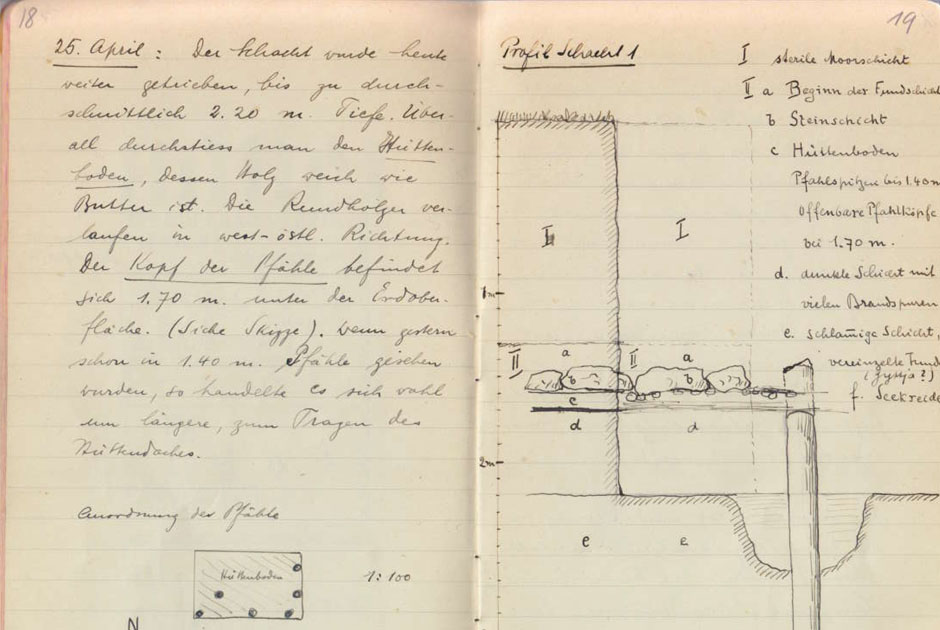 18
25. April : Der Schacht wurde heute
weiter getrieben, bis zu durch-
schnittlich 2.20 m. Tiefe. Über-
all durchstiess man den Hütten-
boden, dessen Holz weich wie
Butter ist. Die Rundhölzer ver-
laufen in west-östl. Richtung.
Der Kopf der Pfähle befindet
sich 1.70 m. unter der Erdober-
fläche. (Siehe Skizze). Wenn gestern
schon in 1.40 m. Pfähle gesehen
wurden, so handelte es sich wohl
um längere, zum Tragen des
Hüttendaches.
Anordnung der Pfähle
Hüttenboden
1:100
N
19
Profil Schacht 1
I sterile Moorschicht
II a Beginn der Fundschicht
b Steinschicht
c Hüttenboden
Pfahlspitzen bis 1.40 m
Offenbare Pfahlköpfe
bei 1.70 m.
d. dunkle Schicht mit
vielen Brandspuren
e. schlammige Schicht,
vereinzelte Fund
(Gyttja?)
f. Seekreide
I I
1m
II a II a
b b
c
d d
2m
e e